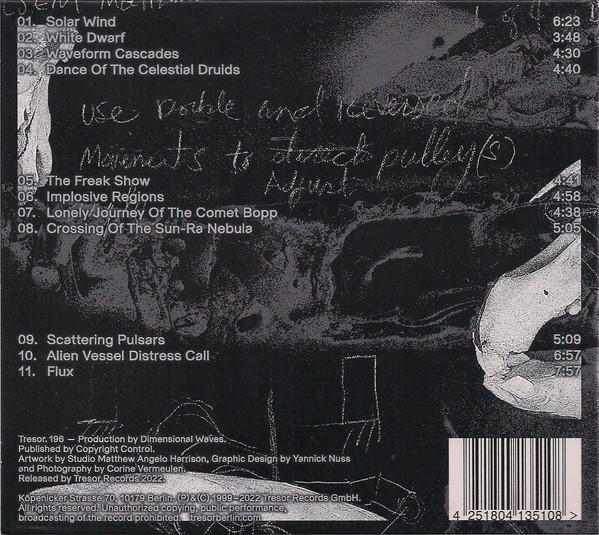 01. Solar Wind 6:23
02. White Dwarf 3:48
03. Waveform Cascades 4:30
04. Dance Of The Celestial Druids 4:40
Use Double and Reversed
Movements to direct pulley(s)
Adjust
05. The Freak Show 4:41
06. Implosive Regions 4:58
07. Lonely Journey Of The Comet Bopp 4:38
08. Crossing Of The Sun-Ra Nebula 5:05
09. Scattering Pulsars 5:09
10. Alien Vessel Distress Call 6:57
11. Flux 7:57
Tresor. 196 — Production by Dimensional Waves.
Published by Copyright Control.
Artwork by Studio Matthew Angelo Harrison, Graphic Design by Yannick Nuss
and Photography by Corine Vermeulen.
Released by Tresor Records 2022.
Köpenicker Strasse 70, 10179 Berlin. (P)&(C) 1999–2022 Tresor Records GmbH.
All rights reserved. Unauthorized copying, public performance,
broadcasting of the record prohibited. tresorberlin.com
4 251804 135108 >